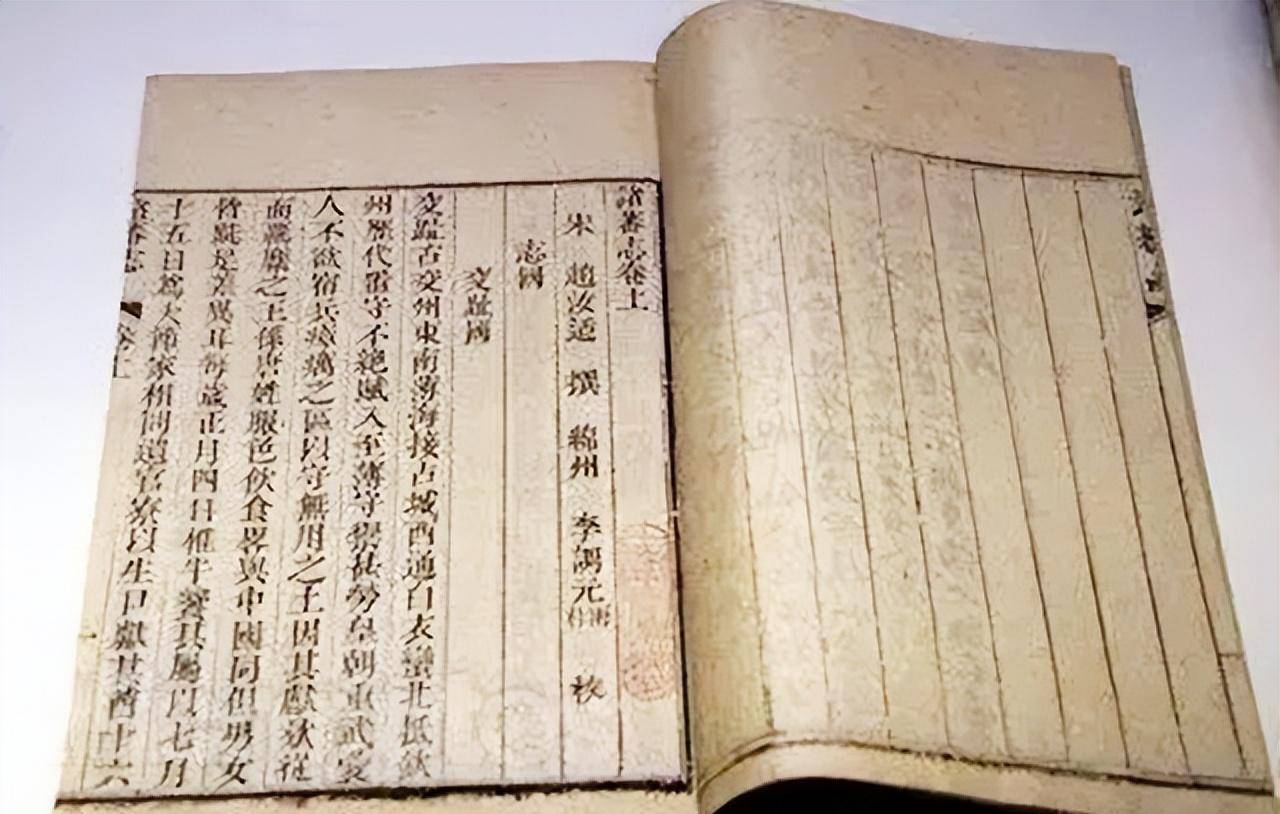 諸蕃志卷上
宋 趙汝适 撰 綿州 李調元 雨村 校
志國
交趾國
交趾古交州東南薄海接占城西通白衣蠻北抵欽
州歷代置守不絶賦入至薄守禦甚勞皇朝重武愛
人不欲宿兵瘴癘之區以守無用之土因其獻欵從
而羈縻之王係唐姓服色飲食畧與中國同但男女
皆跣足差異耳每歲正月四日椎牛饗其屬以七月
十五日爲大節家相問遺官寮以生口獻其酋十六
諸蕃志 卷上